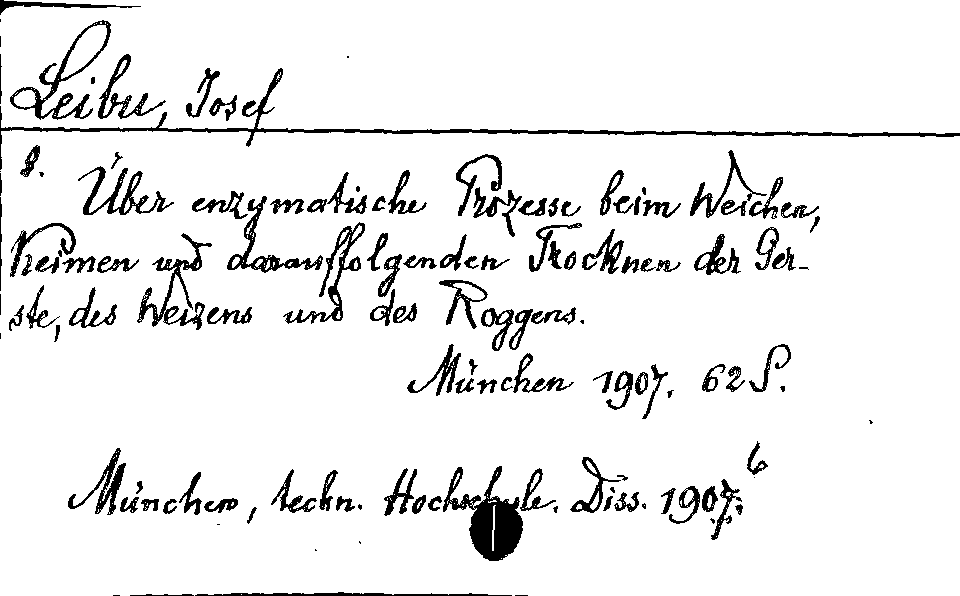 Leibu, Josef
8.
Über enzymatische Prozesse beim Weichen,
Keimen und darauffolgenden Trocknen der Ger-
ste, des Weizens und des Roggens.
München 1907. 62 S.
6
München, techn. Hochschule. Diss. 1907.